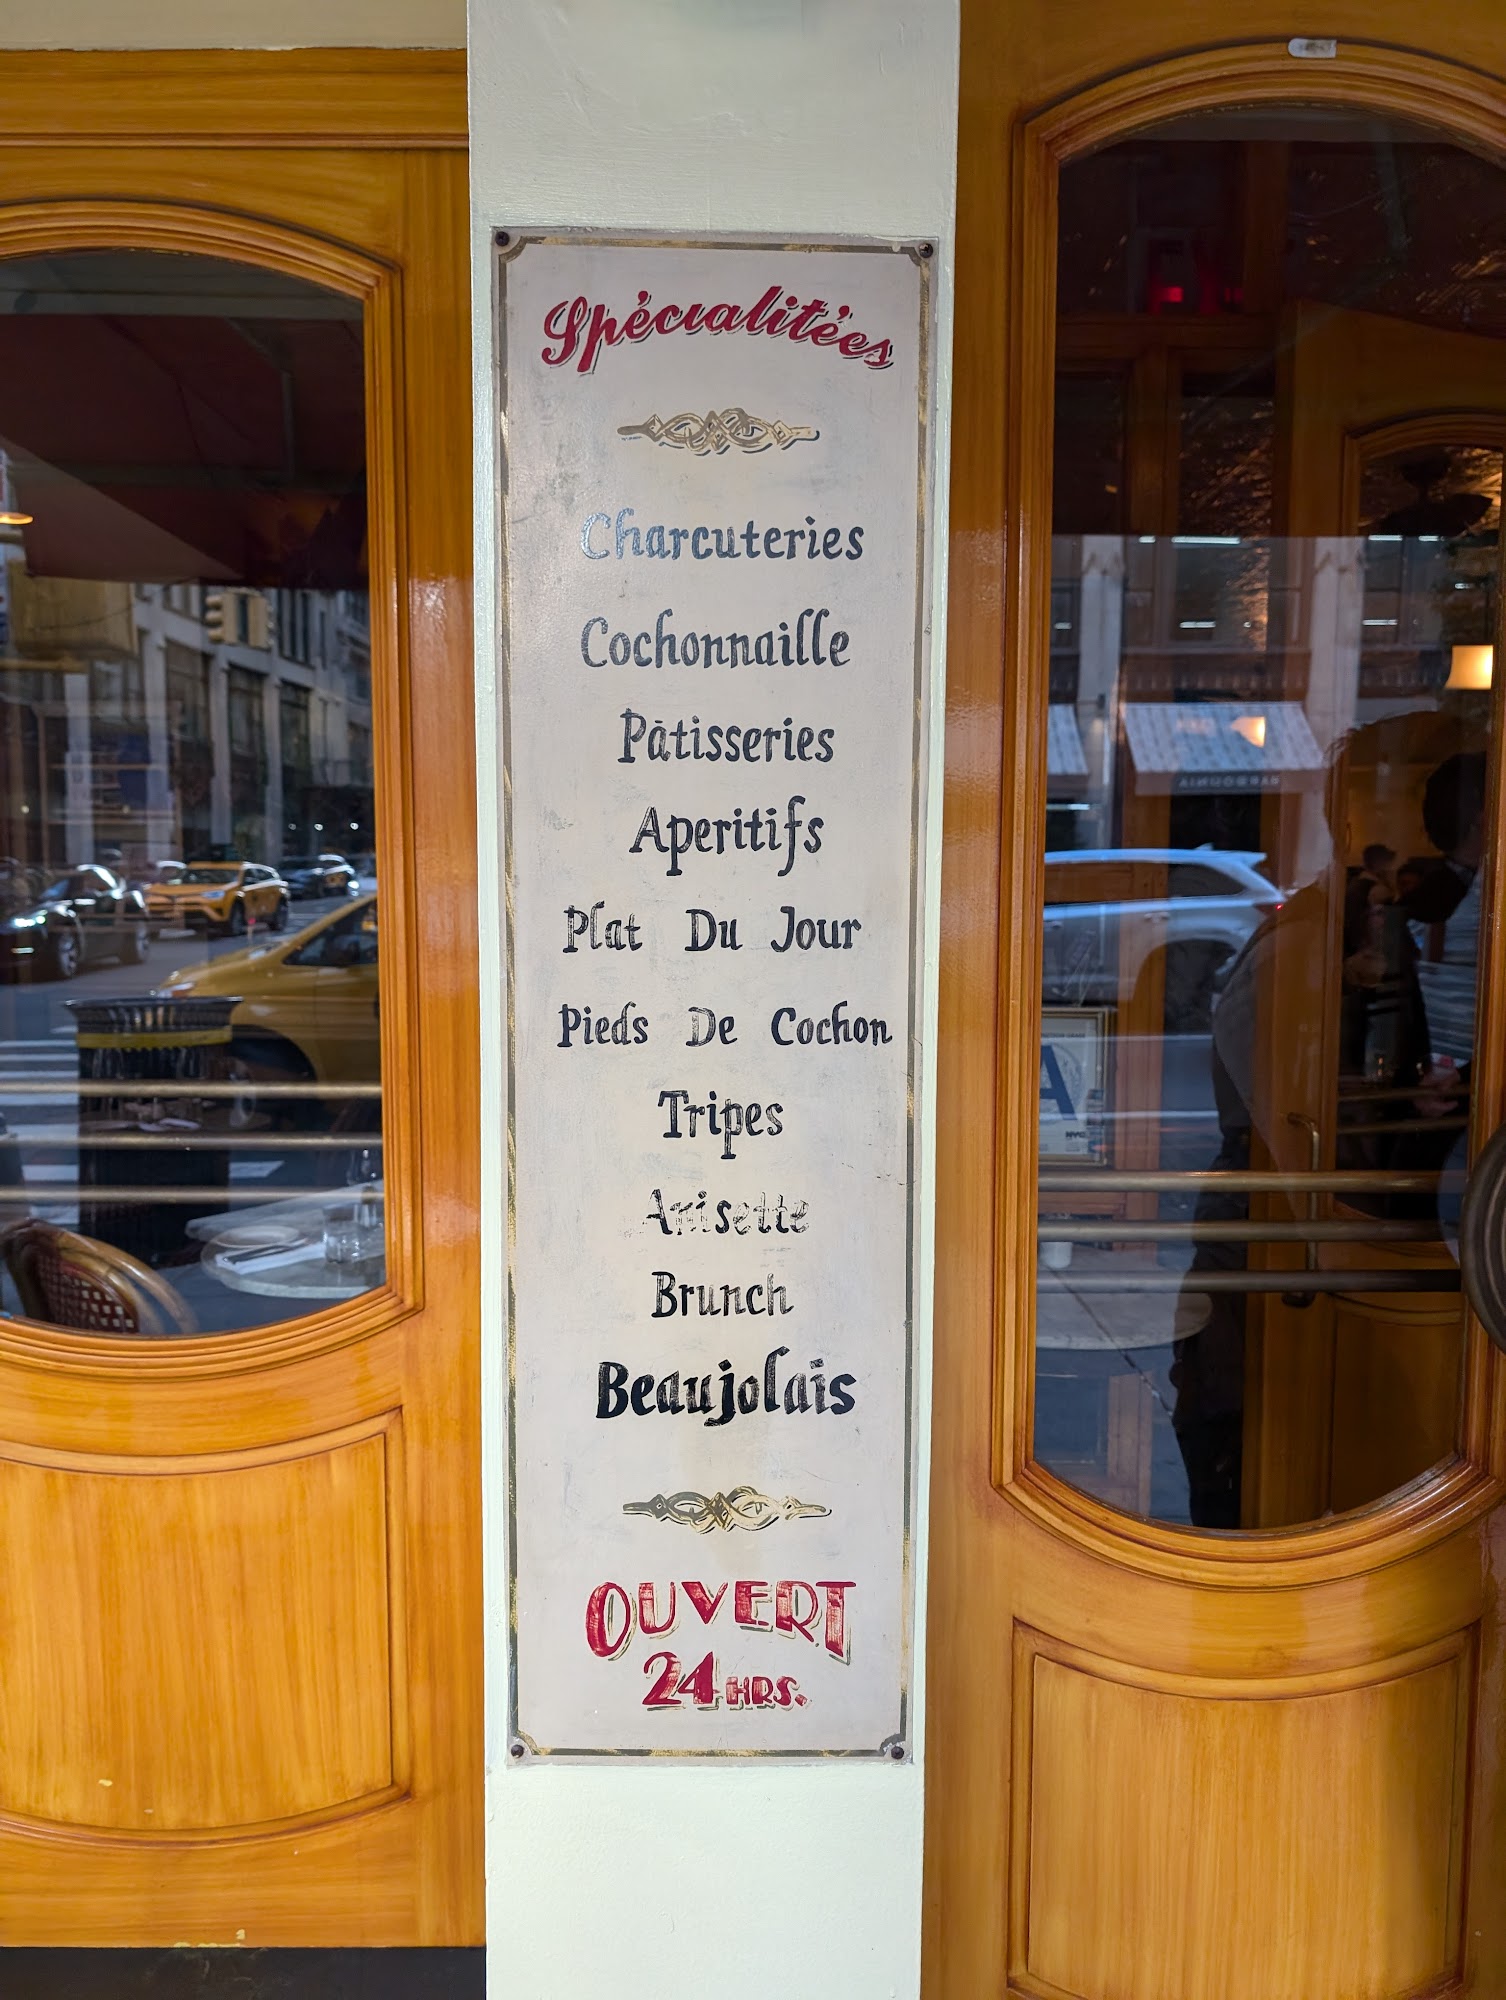 Spécialitées
Charcuteries
Cochonnaille
Pâtisseries
Aperitifs
Plat Du Jour
Pieds De Cochon
Tripes
Anisette
Brunch
Beaujolais
OUVERT
24 HRS.
A